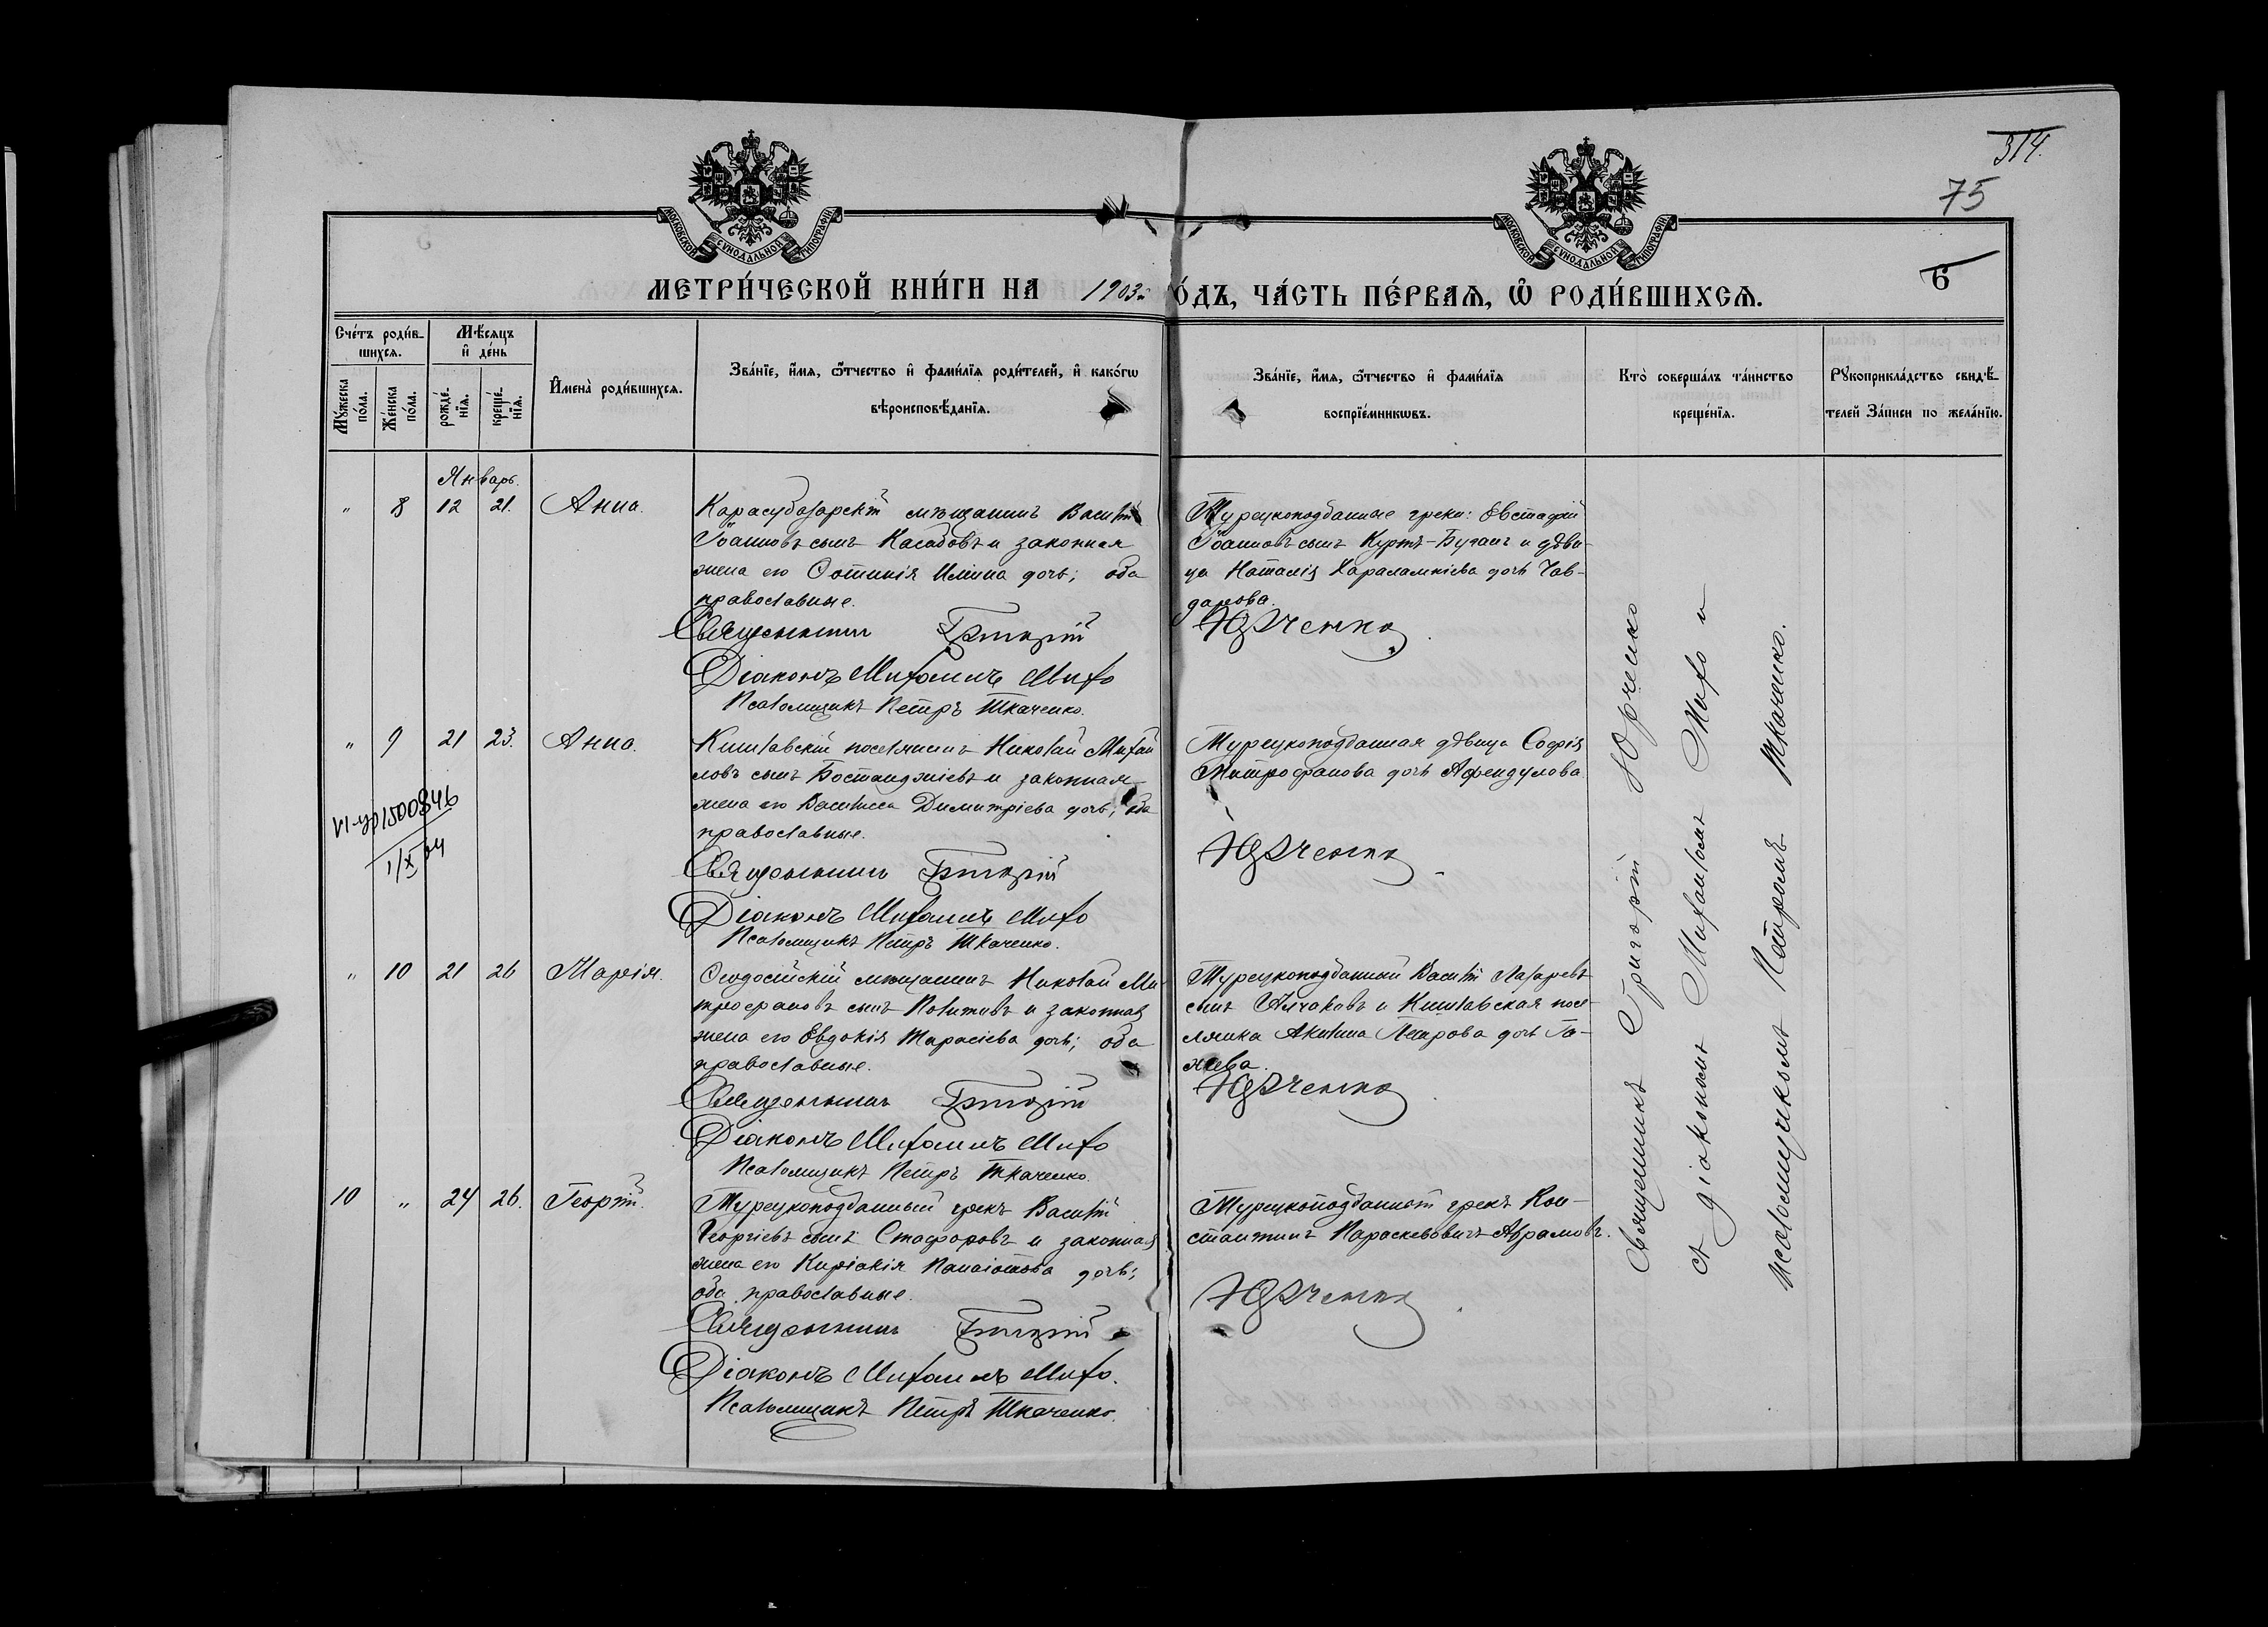 314.
75
6
МОСКОВСКОЙ СѴНОДАЛЬНОЙ ТИПОГРАФІИ
МОСКОВСКОЙ СѴНОДАЛЬНОЙ ТИПОГРАФІИ
МЕТРИ́ЧЕСКОЙ КНИ́ГИ НА 1903 го́дъ, ЧА́СТЬ ПЕ́РВАѦ, Ѡ҆ РОДИ́ВШИХСѦ.
Сче́тъ роди́в-
шихсѧ.
Мꙋ́жеска по́ла.
Же́нска по́ла.
Мѣ́сѧцъ
и҆ де́нь
рожде́-
нїѧ.
креще́-
нїѧ.
И҆мена̀ роди́вшихсѧ.
Зва́нїе, и҆́мѧ, ѻ҆́тчество и҆ фами́лїѧ роди́телей, и҆ како́гѡ
вѣроисповѣ́данїѧ.
Зва́нїе, и҆́мѧ, ѻ҆́тчество и҆ фами́лїѧ
воспрїе́мникѡвъ.
Кто̀ соверша́лъ та́инство
креще́нїѧ.
Рꙋкоприкла́дство свидѣ́-
телей За́писи по жела́нїю.
Январь.
" 8 12 21. Анна.
Карасубазарскій мѣщанинъ Василій
Іоанновъ сынъ Касабовъ и законная
жена его Фотинія Иліина дочь; оба
православные.
Священникъ Григорій
Діаконъ Михаилъ Михо
Псаломщикъ Петръ Ткаченко.
Турецкоподданные греки: Евстафій
Іоанновъ сынъ Куртъ-Буганъ и дѣви-
ца Наталія Харалампіева дочь Чав-
дарова.
Юрченко
" 9 21 23. Анна.
VI-ур1500846
1/X 04
Кишлавскій поселянинъ Николай Михаи
ловъ сынъ Бостанджіевъ и законная
жена его Василиса Димитріева дочь; оба
православные.
Священникъ Григорій
Діаконъ Михаилъ Михо
Псаломщикъ Петръ Ткаченко.
Турецкоподданная дѣвица Софія
Митрофанова дочь Афендулова.
Юрченко
" 10 21 26 Марія.
Ѳеодосійскій мѣщанинъ Николай Ми
трофановъ сынъ Політовъ и законная
жена его Евдокія Тарасіева дочь; оба
православные.
Священникъ Григорій
Діаконъ Михаилъ Михо
Псаломщикъ Петръ Ткаченко.
Турецкоподданный Василій Лазаревъ
сынъ Алчаковъ и Кишлавская посе-
лянка Акилина Петрова дочь Го-
жева.
Юрченко
10 " 24 26. Георгій.
Турецкоподданный грекъ Василій
Георгіевъ сынъ Стафоровъ и законная
жена его Киріакія Панаіотова дочь;
оба православные.
Священникъ Григорій
Діаконъ Михаилъ Михо.
Псаломщикъ Петръ Ткаченко.
Турецкоподданный грекъ Кон-
стантинъ Параскевовичъ Аврамовъ.
Юрченко
Священникъ Григорій Юрченко
съ діакономъ Михаиломъ Михо и
псаломщикомъ Петромъ Ткаченко.